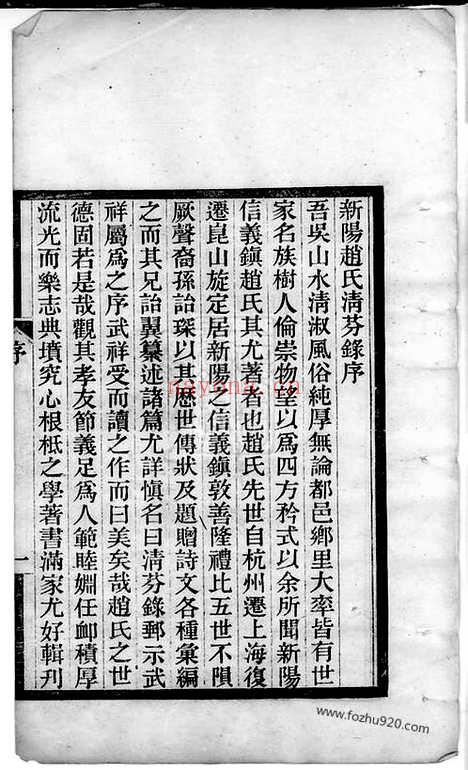 新陽趙氏清芬錄序
吾吳山水清淑風俗純厚無論都邑鄉里大率皆有世
家名族樹人倫崇物望以爲四方矜式以余所聞新陽
信義鎮趙氏其尤著者也趙氏先世自杭州遷上海復
遷崑山旋定居新陽之信義鎮敦善隆禮比五世不隕
厥聲裔孫詒琛以其歷世傳狀及題贈詩文各種彙編
之而其兄詒翼纂述諸篇尤詳愼名曰清芬錄郵示武
祥屬爲之序武祥受而讀之作而曰美矣哉趙氏之世
德固若是哉觀其孝友節義足爲人範睦婣任卹積厚
流光而樂志典墳究心根柢之學著書滿家尤好輯刋
序
一
nayona.cn
www.fozhu920.com